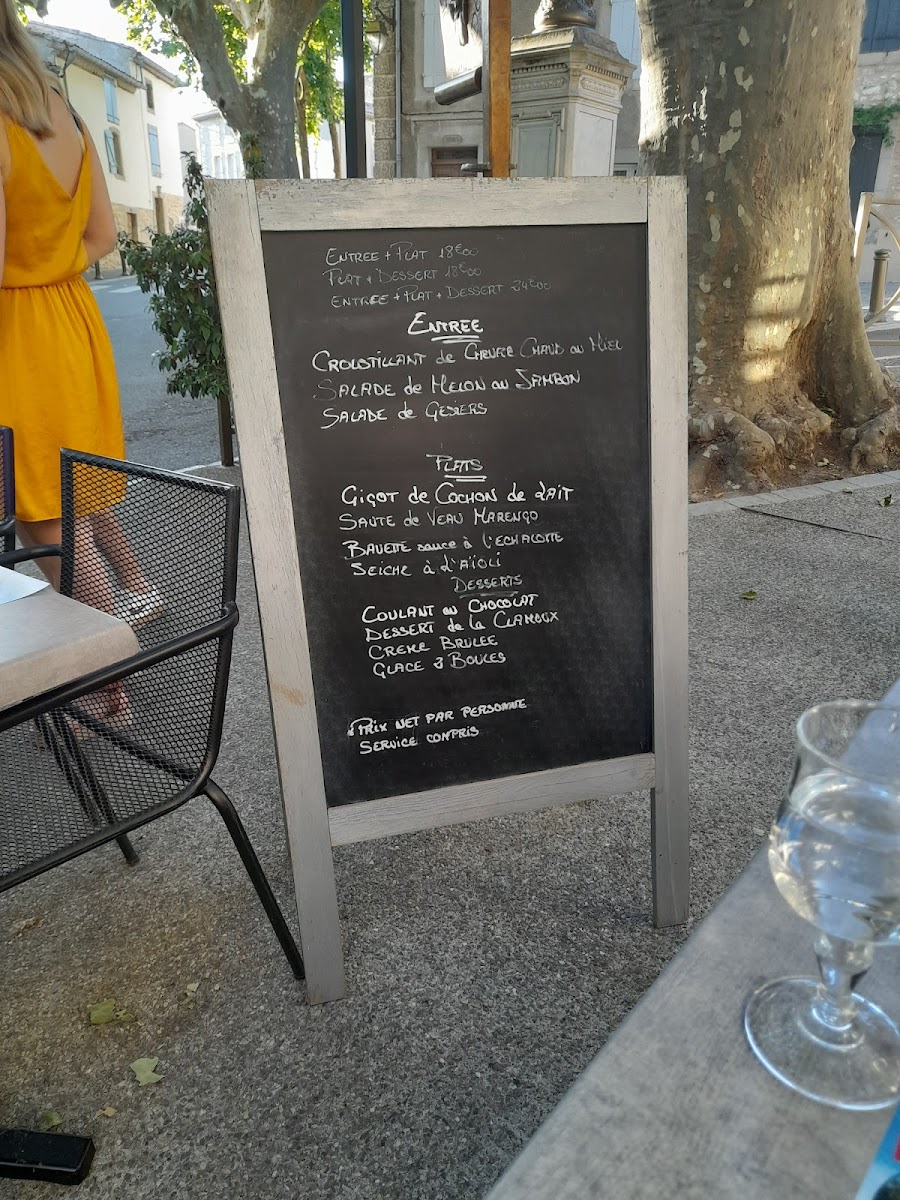 ENTREE + PLAT 18€00
PLAT + DESSERT 18€00
ENTREE + PLAT + DESSERT 24€00
ENTREE
CROUSTILLANT de CHEVRE CHAUD au MIEL
SALADE de MELON au JAMBON
SALADE de GESIERS
PLATS
GIGOT de COCHON de LAIT
SAUTE de VEAU MARENGO
BAVETTE sauce à L'ECHALOTTE
SEICHE à L'AÏOLI
DESSERTS
COULANT au CHOCOLAT
DESSERT de la CLAMOUX
CREME BRULEE
GLACE 3 BOULES
PRIX NET PAR PERSONNE
SERVICE COMPRIS